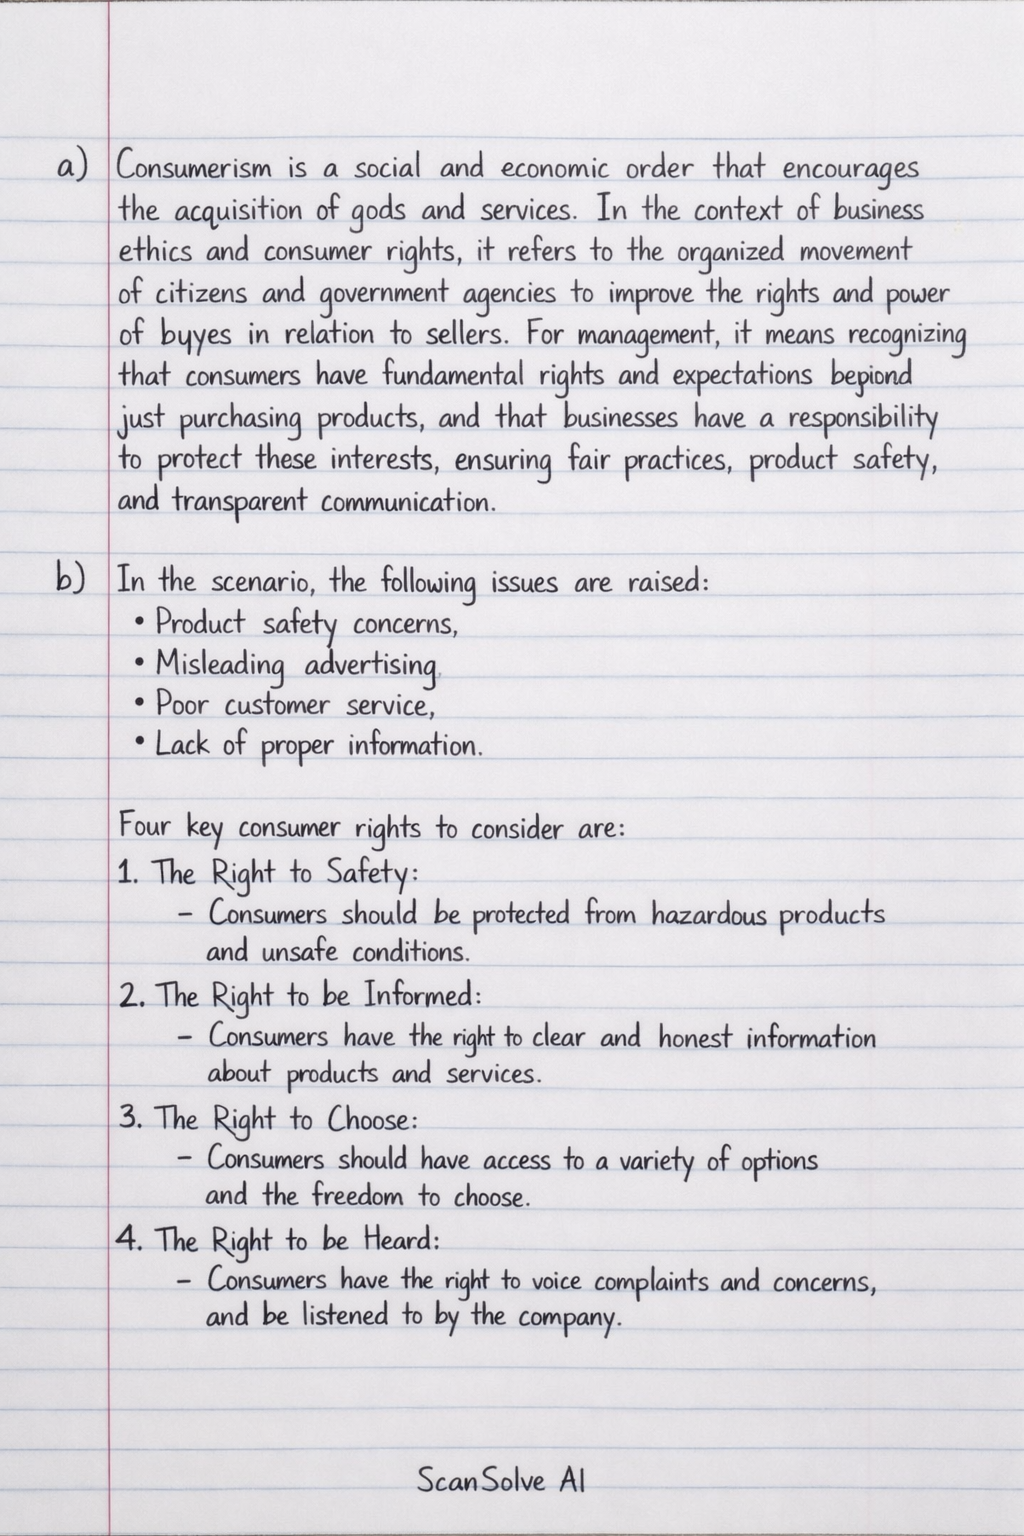 a) Consumerism is a social and economic order that encourages
the acquisition of gods and services. In the context of business
ethics and consumer rights, it refers to the organized movement
of citizens and government agencies to improve the rights and power
of buyyes in relation to sellers. For management, it means recognizing
that consumers have fundamental rights and expectations bepiond
just purchasing products, and that businesses have a responsibility
to protect these interests, ensuring fair practices, product safety,
and transparent communication.
b) In the scenario, the following issues are raised:
• Product safety concerns,
• Misleading advertising,
• Poor customer service,
• Lack of proper information.
Four key consumer rights to consider are:
1. The Right to Safety:
– Consumers should be protected from hazardous products
and unsafe conditions.
2. The Right to be Informed:
– Consumers have the right to clear and honest information
about products and services.
3. The Right to Choose:
– Consumers should have access to a variety of options
and the freedom to choose.
4. The Right to be Heard:
– Consumers have the right to voice complaints and concerns,
and be listened to by the company.
ScanSolve AI